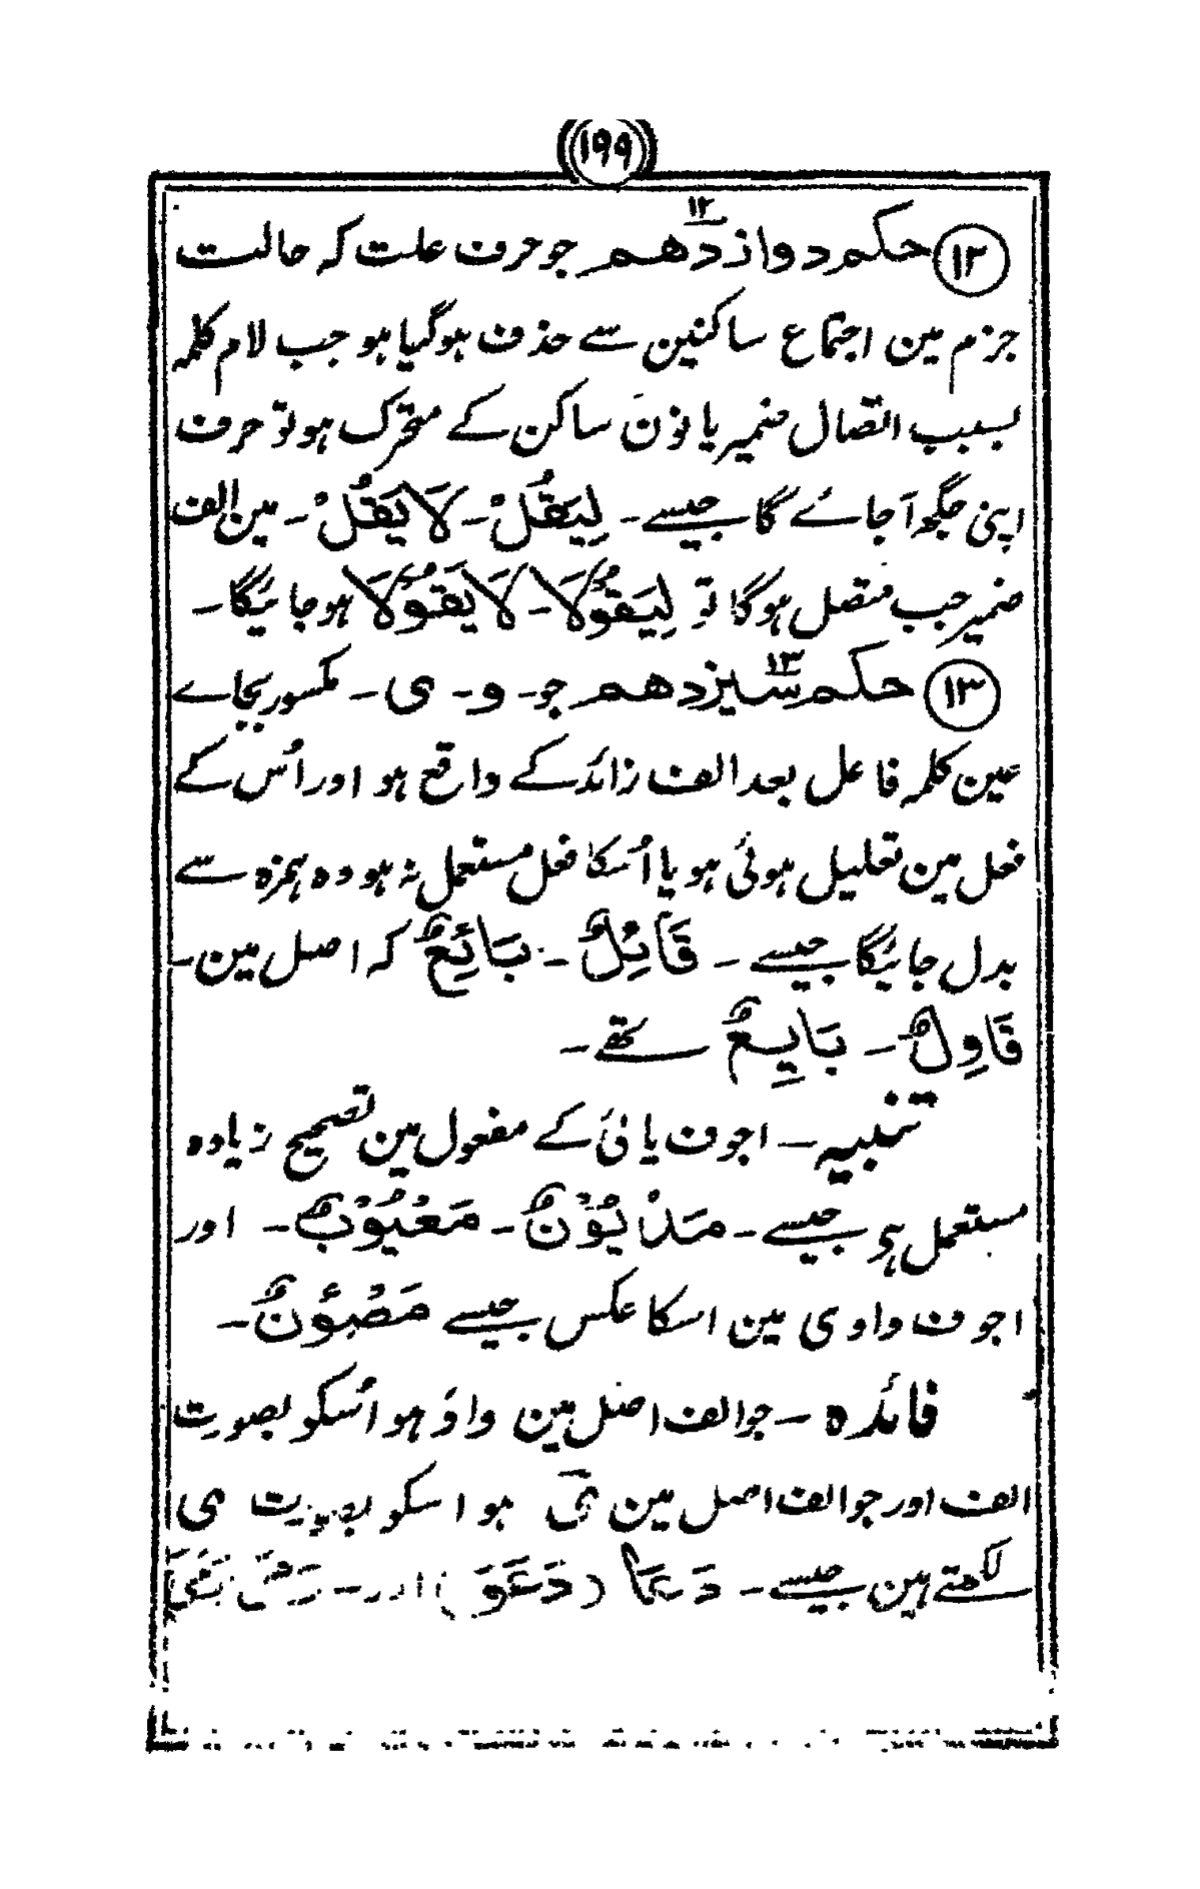 ۱۹۹
۱۲ حکم دواز دھم ۱۲ جو حرف علت کہ حالت
جزم مین اجتماع ساکنین سے حذف ہوگیا ہو جب لام کلمہ
بسبب اتصال ضمیر یا نون ساکن کے متحرک ہو تو حرف
اپنی جگہ آجائے گا جیسے ۔ لِیَقُلْ ۔ لَا یَقُلْ ۔ مین الف
ضمیر جب متصل ہوگا تو لِیَقُوْلَا ۔ لَا یَقُوْلَا ہو جائیگا ۔
۱۳ حکم سیزدھم ۱۳ جو ۔ و ۔ ی ۔ مکسور بجاے
عین کلمہ فاعل بعد الف زائد کے واقع ہو اور اُس کے
فعل مین تعلیل ہوئی ہو یا اُسکا فعل مستعمل نہ ہو وہ ہمزہ سے
بدل جائیگا جیسے ۔ قَائِلٌ ۔ بَائِعٌ کہ اصل مین ۔
قَاوِلٌ ۔ بَایِعٌ تھے ۔
تنبیہ ۔ اجوف یائی کے مفعول مین تصحیح زیادہ
مستعمل ہی جیسے ۔ مَدْیُوْنٌ ۔ مَعْیُوْبٌ ۔ اور
اجوف واوی مین اسکا عکس جیسے مَصْئُوْنٌ ۔
فائدہ ۔ جو الف اصل مین واؤ ہو اُسکو بصورت
الف اور جو الف اصل مین ی ہو اسکو بصورت ی
لکھتے ہین جیسے ۔ دَعَا (دَعَوَ) اور ۔